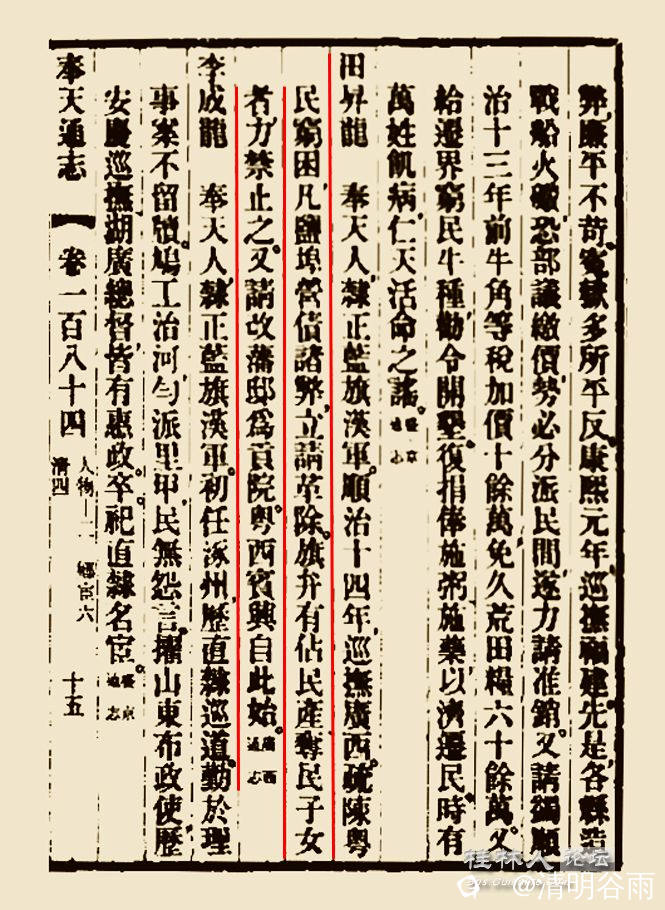 弊、廉平不苛。讞獄多所平反。康熙元年、巡撫福建。先是、各縣造
戰船火礮、恐部議繳價、勢必分派民間、遂力請准銷。又請蠲順
治十三年前牛角等稅加價十餘萬、免久荒田糧六十餘萬。又
給遷界窮民牛種、勸令開墾。復捐俸施粥施藥、以濟遷民。時有
萬姓飢病、仁天活命之謠。盛京通志
田昇龍 奉天人、隸正藍旗漢軍。順治十四年、巡撫廣西。疏陳粵
民窮困、凡鹽埠營債諸弊、立請革除。旗弁有佔民產奪民子女
者、力禁止之。又請改藩邸爲貢院。粵西賓興自此始。廣西通志
李成龍 奉天人、隸正藍旗漢軍。初任涿州、歷直隸巡道。勤於理
事、案不留牘。鳩工治河、勻派里甲、民無怨言。擢山東布政使、歷
安慶巡撫、湖廣總督、皆有惠政。卒、祀直隸名宦。盛京通志
奉天通志 卷一百八十四 人物十二 鄉宦六 清四 十五
桂林人论坛
@清明谷雨